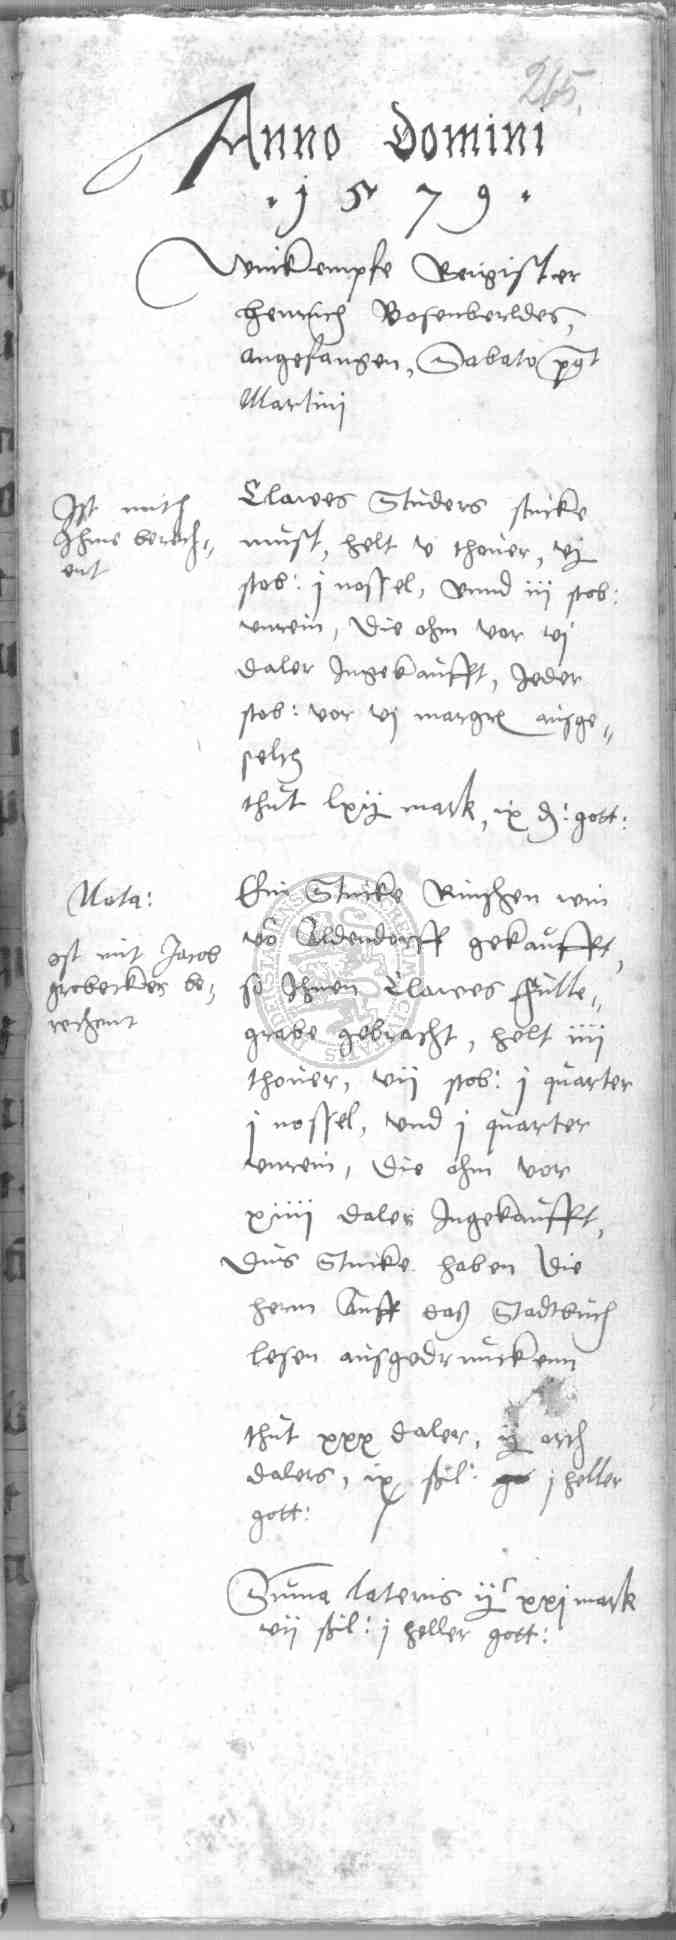 265.
Anno Domini
· 1 5 7 9 ·
Winkempfe Register
Henrich Bosenberldes,
angefangen, Sabato post
Martini
Ist mith
Ihme berech„
ent
Clawes Studers stucke
must, helt v thouer, vj
stob: j nossel, vnnd iij stob:
vnrein, die ohm vor vj
daler Ingekaufft, Jeder
stob: vor vj margk ausge„
selth
thut lxij mark, ix d: gott:
Nota:
est mit Jacob
grobecker be„
rechent
Ein Stucke Rinschen win
vo Aldendorff gekaufft,
so Ihnen Clawes Fulle„
grabe gebracht, helt iiij
thouer, vij stob: j quarter
j nossel, vnd j quarter
vnrein, die ohm vor
xiiij daler Ingekaufft,
Dus Stucke haben die
hern auff das Stadtbuch
lesen ausgedrunckenn
thut xxx daler, ij orth
dalers, ix ßil: j heller
gott:
Suma lateris ijc xxj mark
vij ßil: j heller gott: